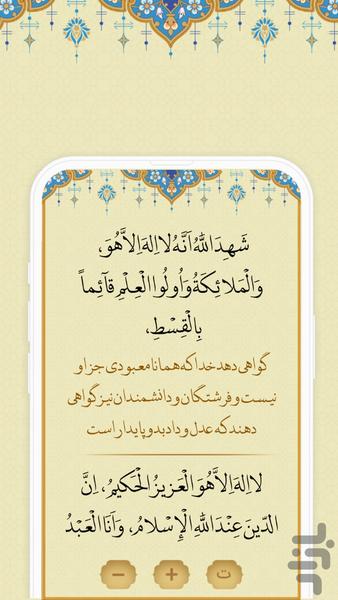 شَهِدَ اللّٰهُ اَنَّهُ لا اِلهَ اِلاَّ هُوَ،
وَالْمَلائِكَةُ وَ اُولُوا الْعِلْمِ قآئِماً
بِالْقِسْطِ،
گواهی دهد خدا که همانا معبودی جز او
نیست و فرشتگان و دانشمندان نیز گواهی
دهند که عدل و داد بدو پایدار است
لا اِلهَ اِلاَّ هُوَ الْعَزیزُ الْحَكیمُ، اِنَّ
الدّینَ عِنْدَ اللّٰهِ الْاِسْلامُ، وَ اَنَا الْعَبْدُ
− + ت
بازار